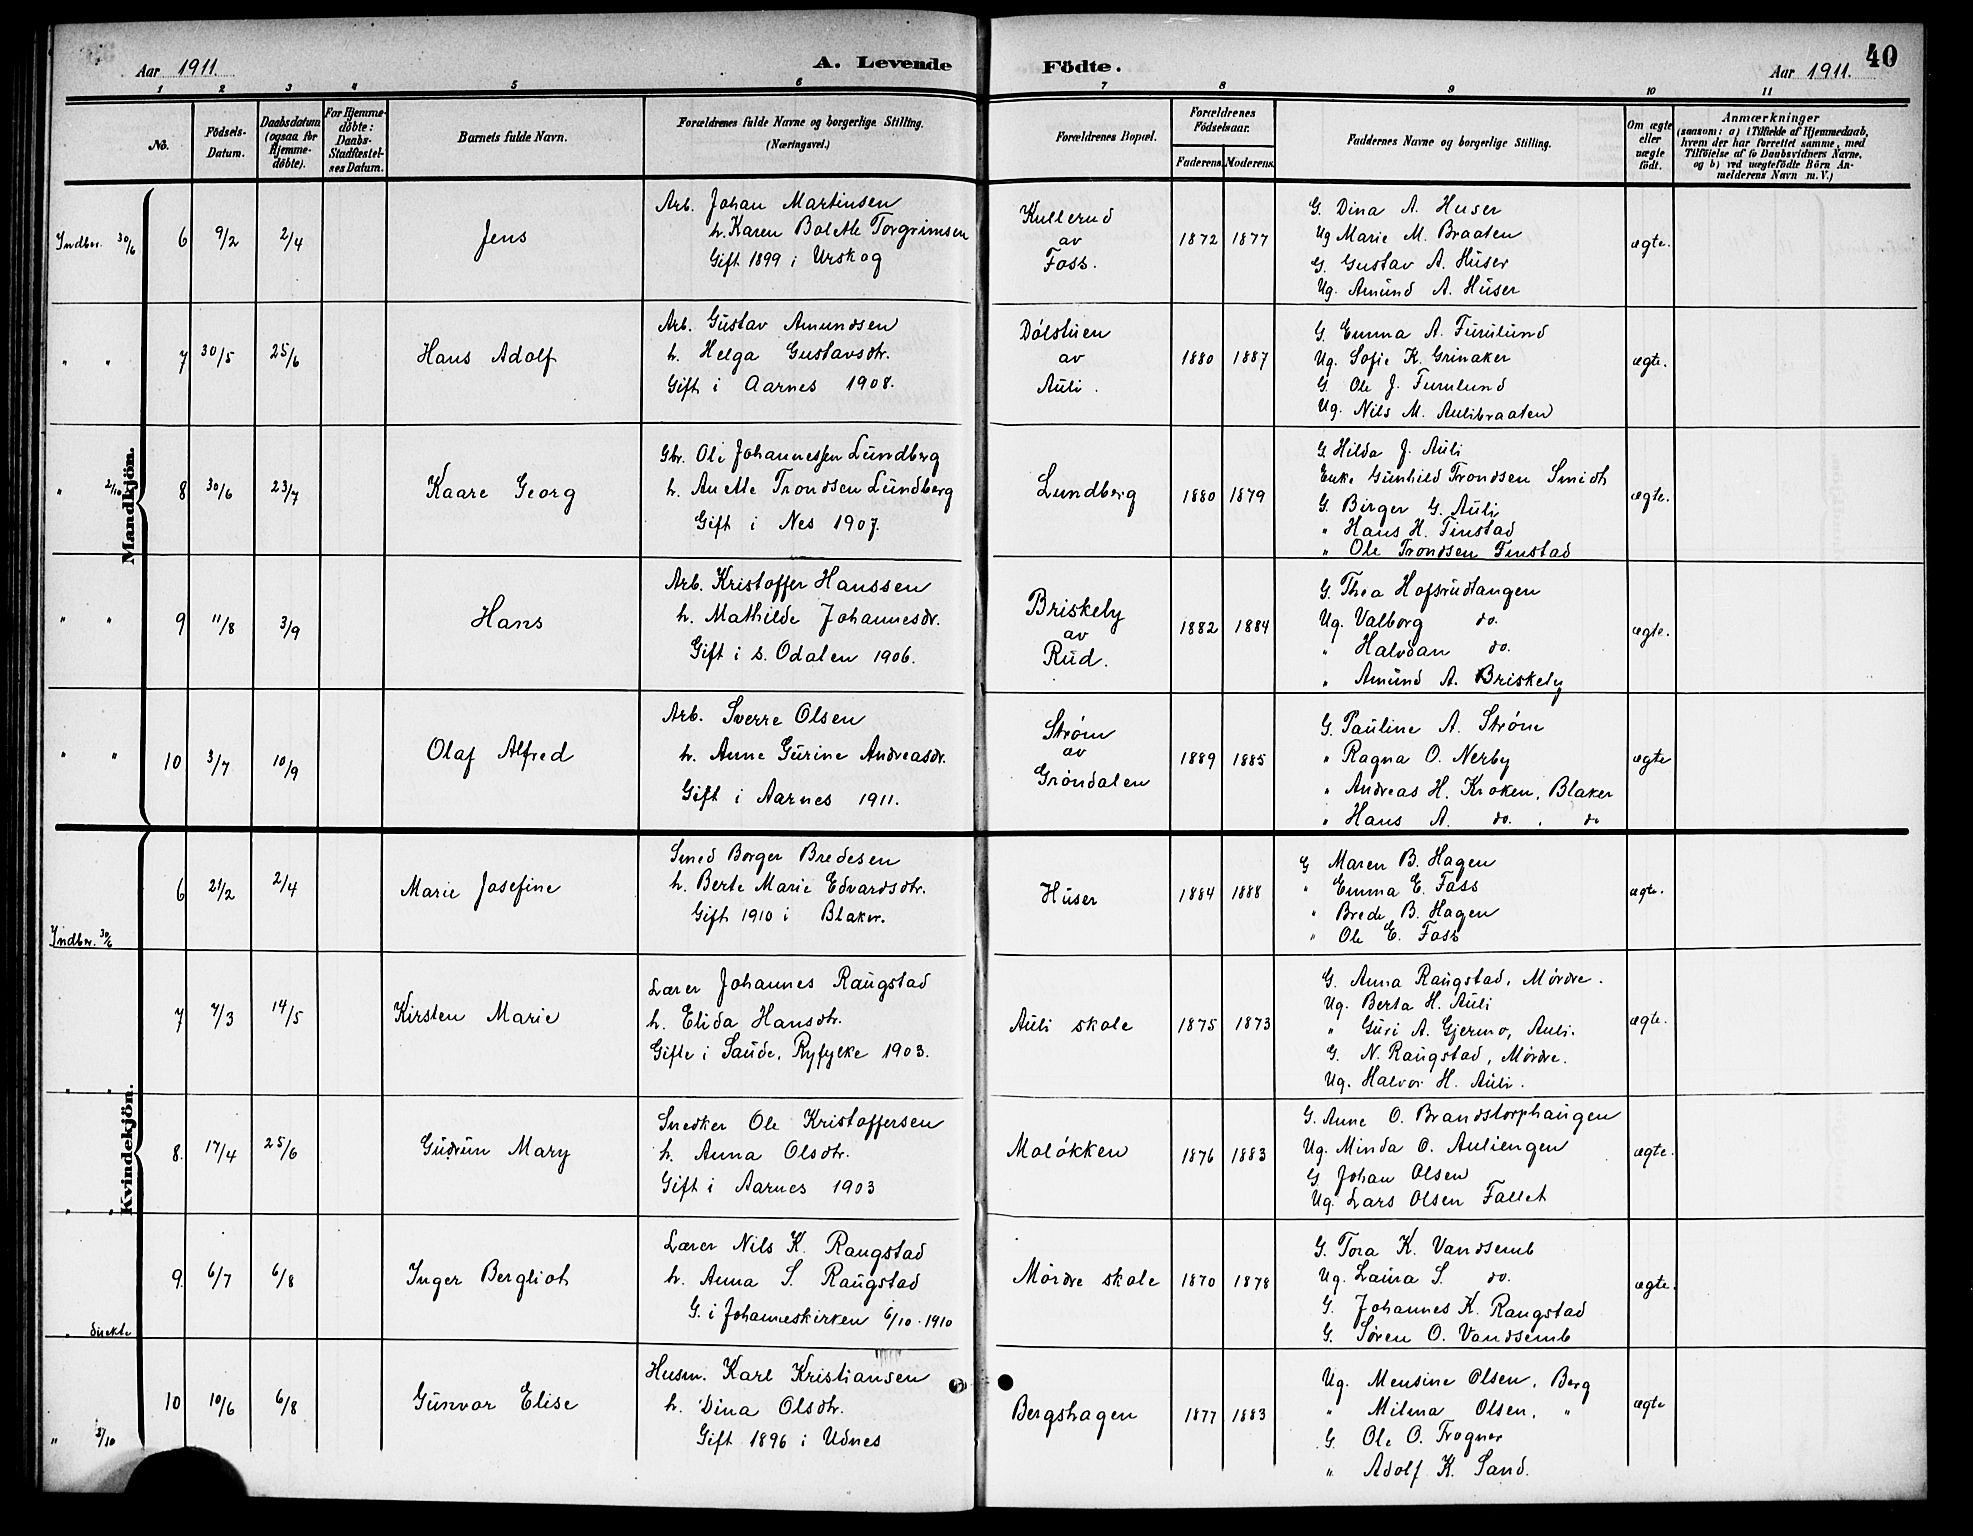 Aar 1911.
A. Levende Födte.
Aar 1911.
40
1 2 3 4 5 6 7 8 9 10 11
No.
Födsels-
Datum.
Daabsdatum
(ogsaa for
Hjemme-
döbte).
For Hjemme-
döbte:
Daabs-
Stadfæstel-
ses Datum.
Barnets fulde Navn.
Forældrenes fulde Navne og borgerlige Stilling.
(Næringsvei.)
Forældrenes Bopæl.
Forældrenes
Födselsaar.
Faderens. Moderens.
Faddernes Navne og borgerlige Stilling.
Om ægte
eller
uægte
födt.
Anmærkninger
(saasom: a) i Tilfælde af Hjemmedaab,
hvem der har forrettet samme, med
Tilföielse af to Daabsvidners Navne,
og b) ved uægtefödte Börn An-
melderens Navn m. V.)
Mandkjön.
Indber. 30/6
6 9/2 2/4 Jens
Arb. Johan Martinsen
h. Karen Bolette Torgrimsen
Gift 1899 i Urskog
Kullerud
av
Foss.
1872 1877
G. Dina A. Huser
Ug Marie M. Braaten
G. Gustav A. Huser
Ug. Amund A. Huser
ægte.
" "
7 30/5 25/6 Hans Adolf
Arb. Gustav Amundsen
h. Helga Gustavsdtr.
Gift i Aarnes 1908.
Dólstuen
av
Auli.
1880 1887
G. Emma A. Furulund
Ug. Sofie K. Grinaker
G. Ole J. Furulund
Ug. Nils M. Aulibraaten
ægte.
" 2/10
8 30/6 23/7 Kaare Georg
Gbr. Ole Johannessen Lundberg
h. Anette Trondsen Lundberg
Gift i Nes 1907.
Lundberg
1880 1879
G Hilda J. Auli
Enke Gunhild Trondsen Smidt
G. Birger G. Auli
" Hans H. Finstad
" Ole Trondsen Finstad
ægte.
" "
9 11/8 3/9 Hans
Arb. Kristoffer Hanssen
h. Mathilde Johannesdr.
Gift i s. Odalen 1906.
Briskely
av
Rud.
1882 1884
G. Thea Hofsrudtangen
Ug. Valborg do.
" Halvdan do.
" Amund A. Briskely
ægte.
" "
10 3/7 10/9 Olaf Alfred
Arb. Sverre Olsen
h. Anne Gurine Andreasdr.
Gift i Aarnes 1911.
Strøm
av
Grøndalen
1889 1885
G. Pauline A. Strøm
" Ragna O. Nerby
" Andreas H. Kroken, Blaker
" Hans A. do. , do
ægte
Kvindekjön.
6 21/2 2/4 Marie Josefine
Smed Borger Bredesen
h. Berte Marie Edvardsdtr.
Gift 1910 i Blaker.
Huser
1884 1888
G Maren B. Hagen
" Emma E. Foss
" Brede B. Hagen
" Ole E. Foss
ægte.
Indber. 30/6
7 7/3 14/5 Kirsten Marie
Lærer Johannes Raugstad
h. Elida Hansdtr.
Gifte i Saude, Ryfylke 1903.
Auli skole
1875 1873
G. Anna Raugstad, Mørdre.
Ug. Berta H. Auli
" Guri A. Gjermo, Auli.
G. N. Raugstad, Mørdre.
Ug. Halvor H. Auli.
ægte.
" "
8. 17/4 25/6 Gudrun Mary
Snedker Ole Kristoffersen
h. Anna Olsdtr.
Gift i Aarnes 1903
Moløkken
1876 1883
G. Anne O. Brandstorphaugen
Ug. Minda O. Auliengen
G Johan Olsen
Ug. Lars Olsen Fallet
ægte.
" "
9. 6/7 6/8 Inger Bergliot
Lærer Nils K. Raugstad
h. Anna S. Raugstad
G. i Johanneskirken 6/10. 1910
Mørdre skole
1870 1878
G. Tora K. Vandsemb
Ug. Laura S. do.
G. Johannes K. Raugstad
G. Søren O. Vandsemb
ægte.
" direkte
10 10/6 6/8 Gunvor Elise
Husm. Karl Kristiansen
h. Dina Olsdtr.
Gift 1896 i Udnes
Bergshagen
1877 1883
Ug. Mensine Olsen, Berg
" Milma Olsen, "
G. Ole O. Frogner
" Adolf K. Sand.
ægte
"